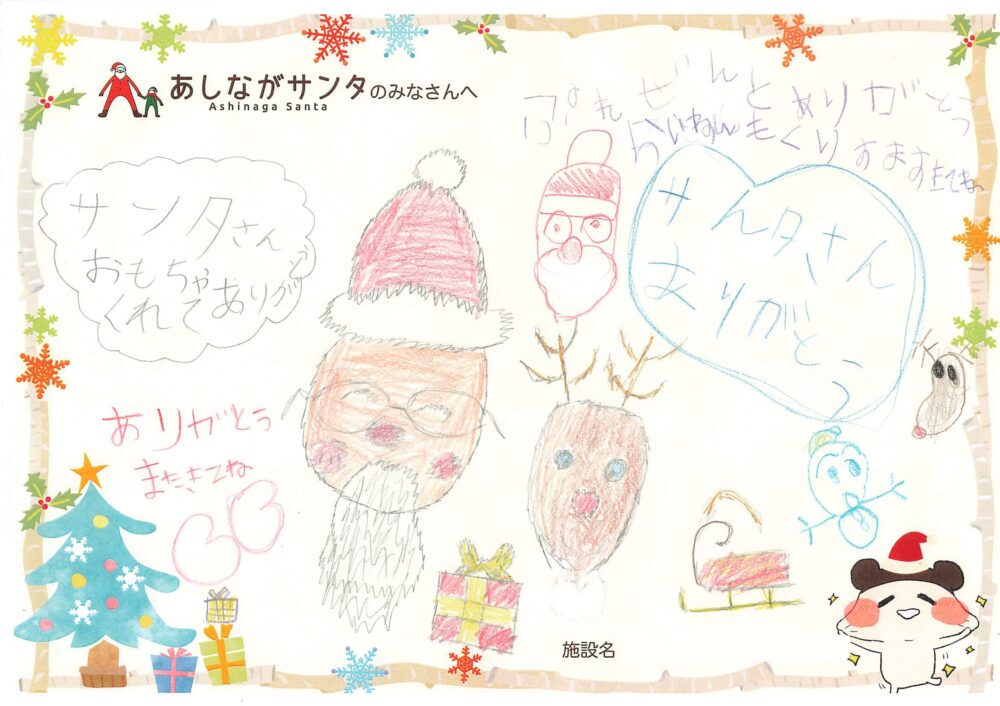 あしながサンタのみなさんへ
Ashinaga Santa
ぷれぜんとありがとう
らいねんもくり
すますきてね
サンタさん
おもちゃ
くれてありがとう
サんタさん
ありがとう
ありがとう
またきてね
施設名